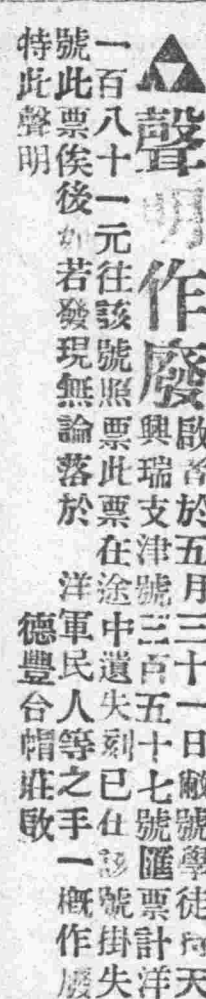 聲明作廢
啟者於五月三十一日敝號學徒向天
興瑞支津號三百五十七號匯票計洋
一百八十一元往該號照票此票在途中遺失刻已在該號掛失
號此票俟後如若發現無論落於 洋軍民人等之手一概作廢
特此聲明 德豐台帽莊啟